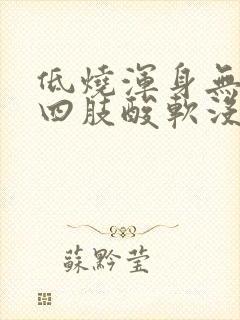 低燒渾身無
四肢酸軟沒
蘇黔瑩